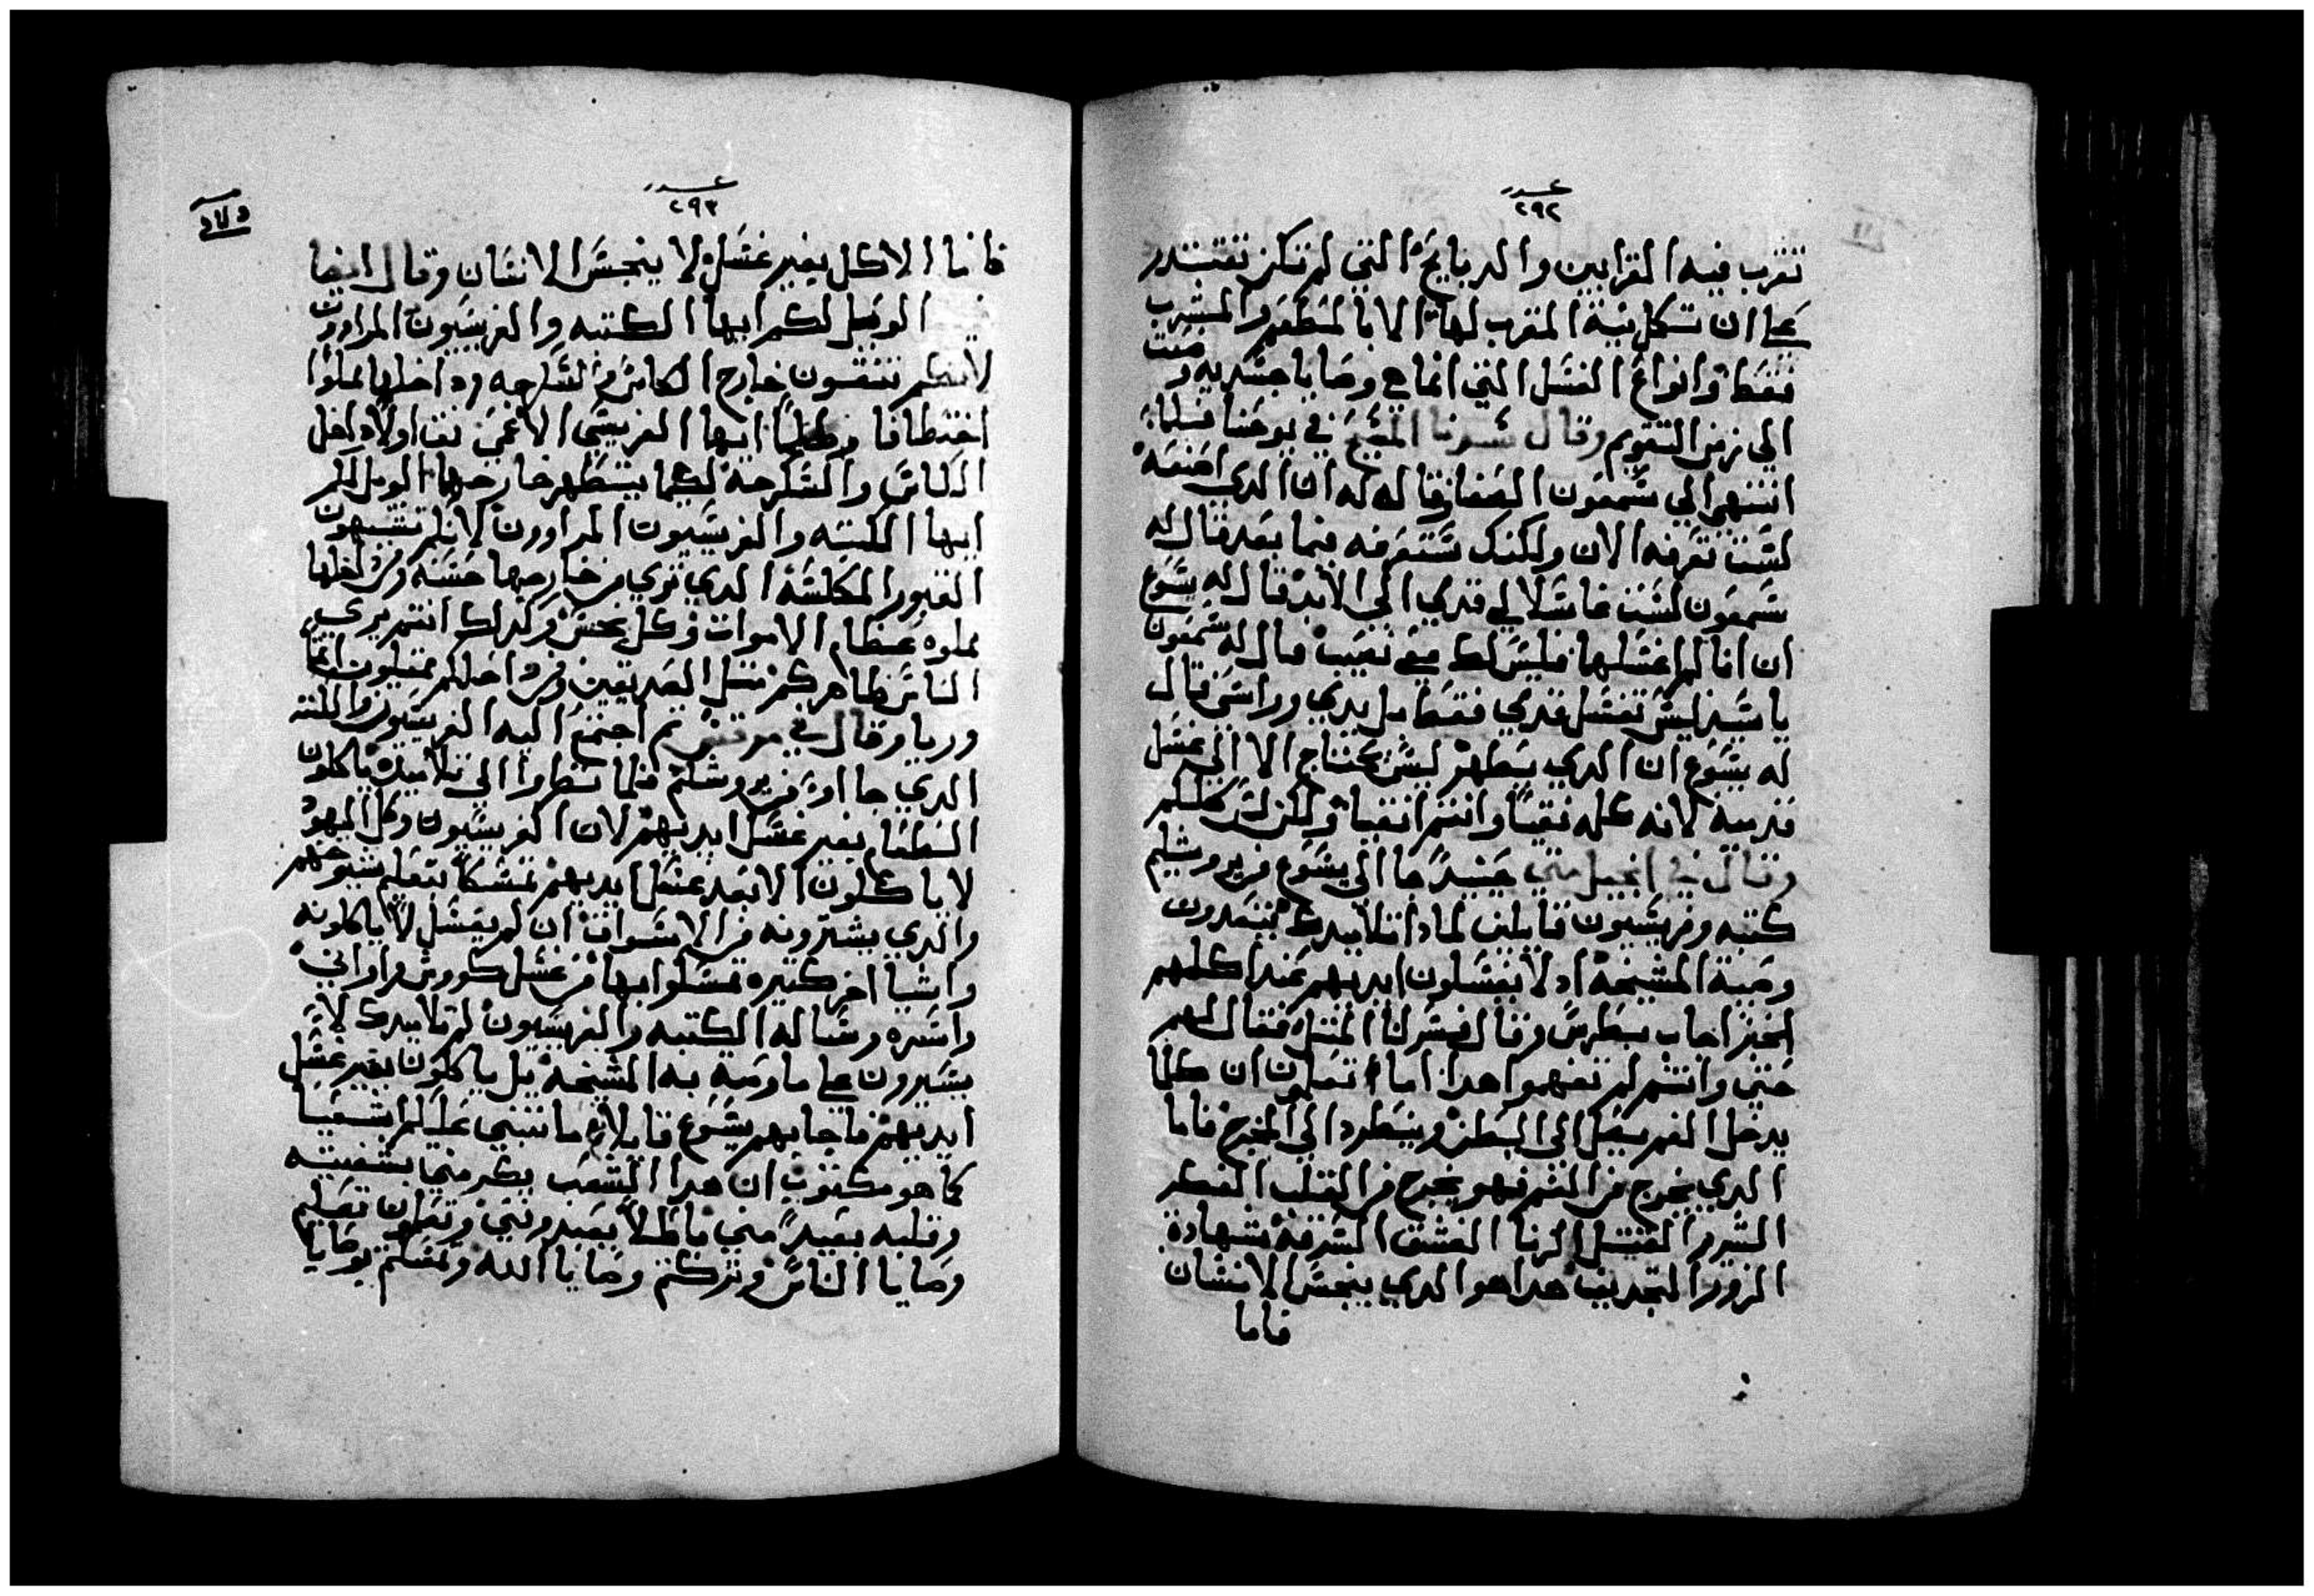 عدد
٢٩٢
تقرب فيه القرابين والدبايح التي لم تكن تقتدر
علي ان تكمل نية المقرب لها الا بالمطعم والمشرب
فقط وانواع الغسل التي انما هي وصايا جسديه وضعت
الي زمن التقويم وقال سيدنا المسيح في يوحنا فلما
انتهي الي سمعون الصفا فقال له ان الدي اصنعه
لست تعرفه الان ولكنك ستعرفه فيما بعد قال له
سمعون لست غاسلا لي قدمي الي الابد قال له يسوع
ان انا لم اغسلها فليس لك معي نصيب قال له سمعون
يا سيد ليس تغسل قدمي فقط بل يدي وراسي قال
له يسوع ان الدي يطهر ليس يحتاج الا الي غسل
قدميه لانه كله نقيا وانتم انقيا ولكن لستم كلكم
وقال في انجيل متي حينيدا جا الي يسوع من يروشليم
كتبه وفريسيون قايلين لمادا تلاميدك يتعدون
وصية المشيخه اد لا يغسلون ايديهم عند اكلهم
الخبز اجاب بطرس وقال فسر لنا المثل فقال لهم
حتي وانتم لم تفهموا هدا اما تعلمون ان كلما
يدخل الفم يصل الي البطن وينطرد الي المخرج فاما
الدي يخرج من الفم فهو يخرج من القلب الفكر
الشرير القتل الزنا الفسق السرقه شهادة
الزور التجديف هدا هو الدي ينجس الانسان
فاما
عدد
٢٩٣
فاما الاكل بغير غسل لا ينجس الانسان وقال ايضا
الويل لكم ايها الكتبه والفريسيون المراوون
لانكم تنقون خارج الكاس والسكرجه وداخلها مملوا
اختطافا وظلما ايها الفريسي الاعمي نق اولا داخل
الكاس والسكرجة لكيما يتطهر خارجها الويل لكم
ايها الكتبه والفريسيون المراوون لانكم تشبهون
القبور المكلسة الدي تري من خارجها حسنه ومن داخلها
مملوه عظام الاموات وكل نجس وكدلك انتم يري
الناس ظاهركم مثل الصديقين ومن داخلكم ممتليون اثما
وريا وقال في مرقس ثم اجتمع اليه الفريسيون والكتبه
الدي جااو من يروشليم فلما نظروا الي تلاميده ياكلون
الطعام بغير غسل ايديهم لان الفريسيون وكل اليهود
لا ياكلون الا بعد غسل ايديهم تمسكا بتعليم شيوخهم
والدي يشترونه من الاسواق ان لم يغسل لا ياكلونه
واشيا اخر كتيره تمسكوا بها من غسل كووس واواني
واسره وساله الكتبه والفريسيون لم تلاميدك لا
يسيرون علي ما وصيه به المشيخه بل ياكلون بغير غسل
ايديهم فاجابهم يسوع قايلا ما تنبي عليكم اشعيا
كما هو مكتوب ان هدا الشعب يكرمني بشفتيه
وقلبه بعيدا مني باطلا يعبدونني وتعلمون تعليم
وصايا الناس وتركتم وصايا الله وتمسكتم بوصايا